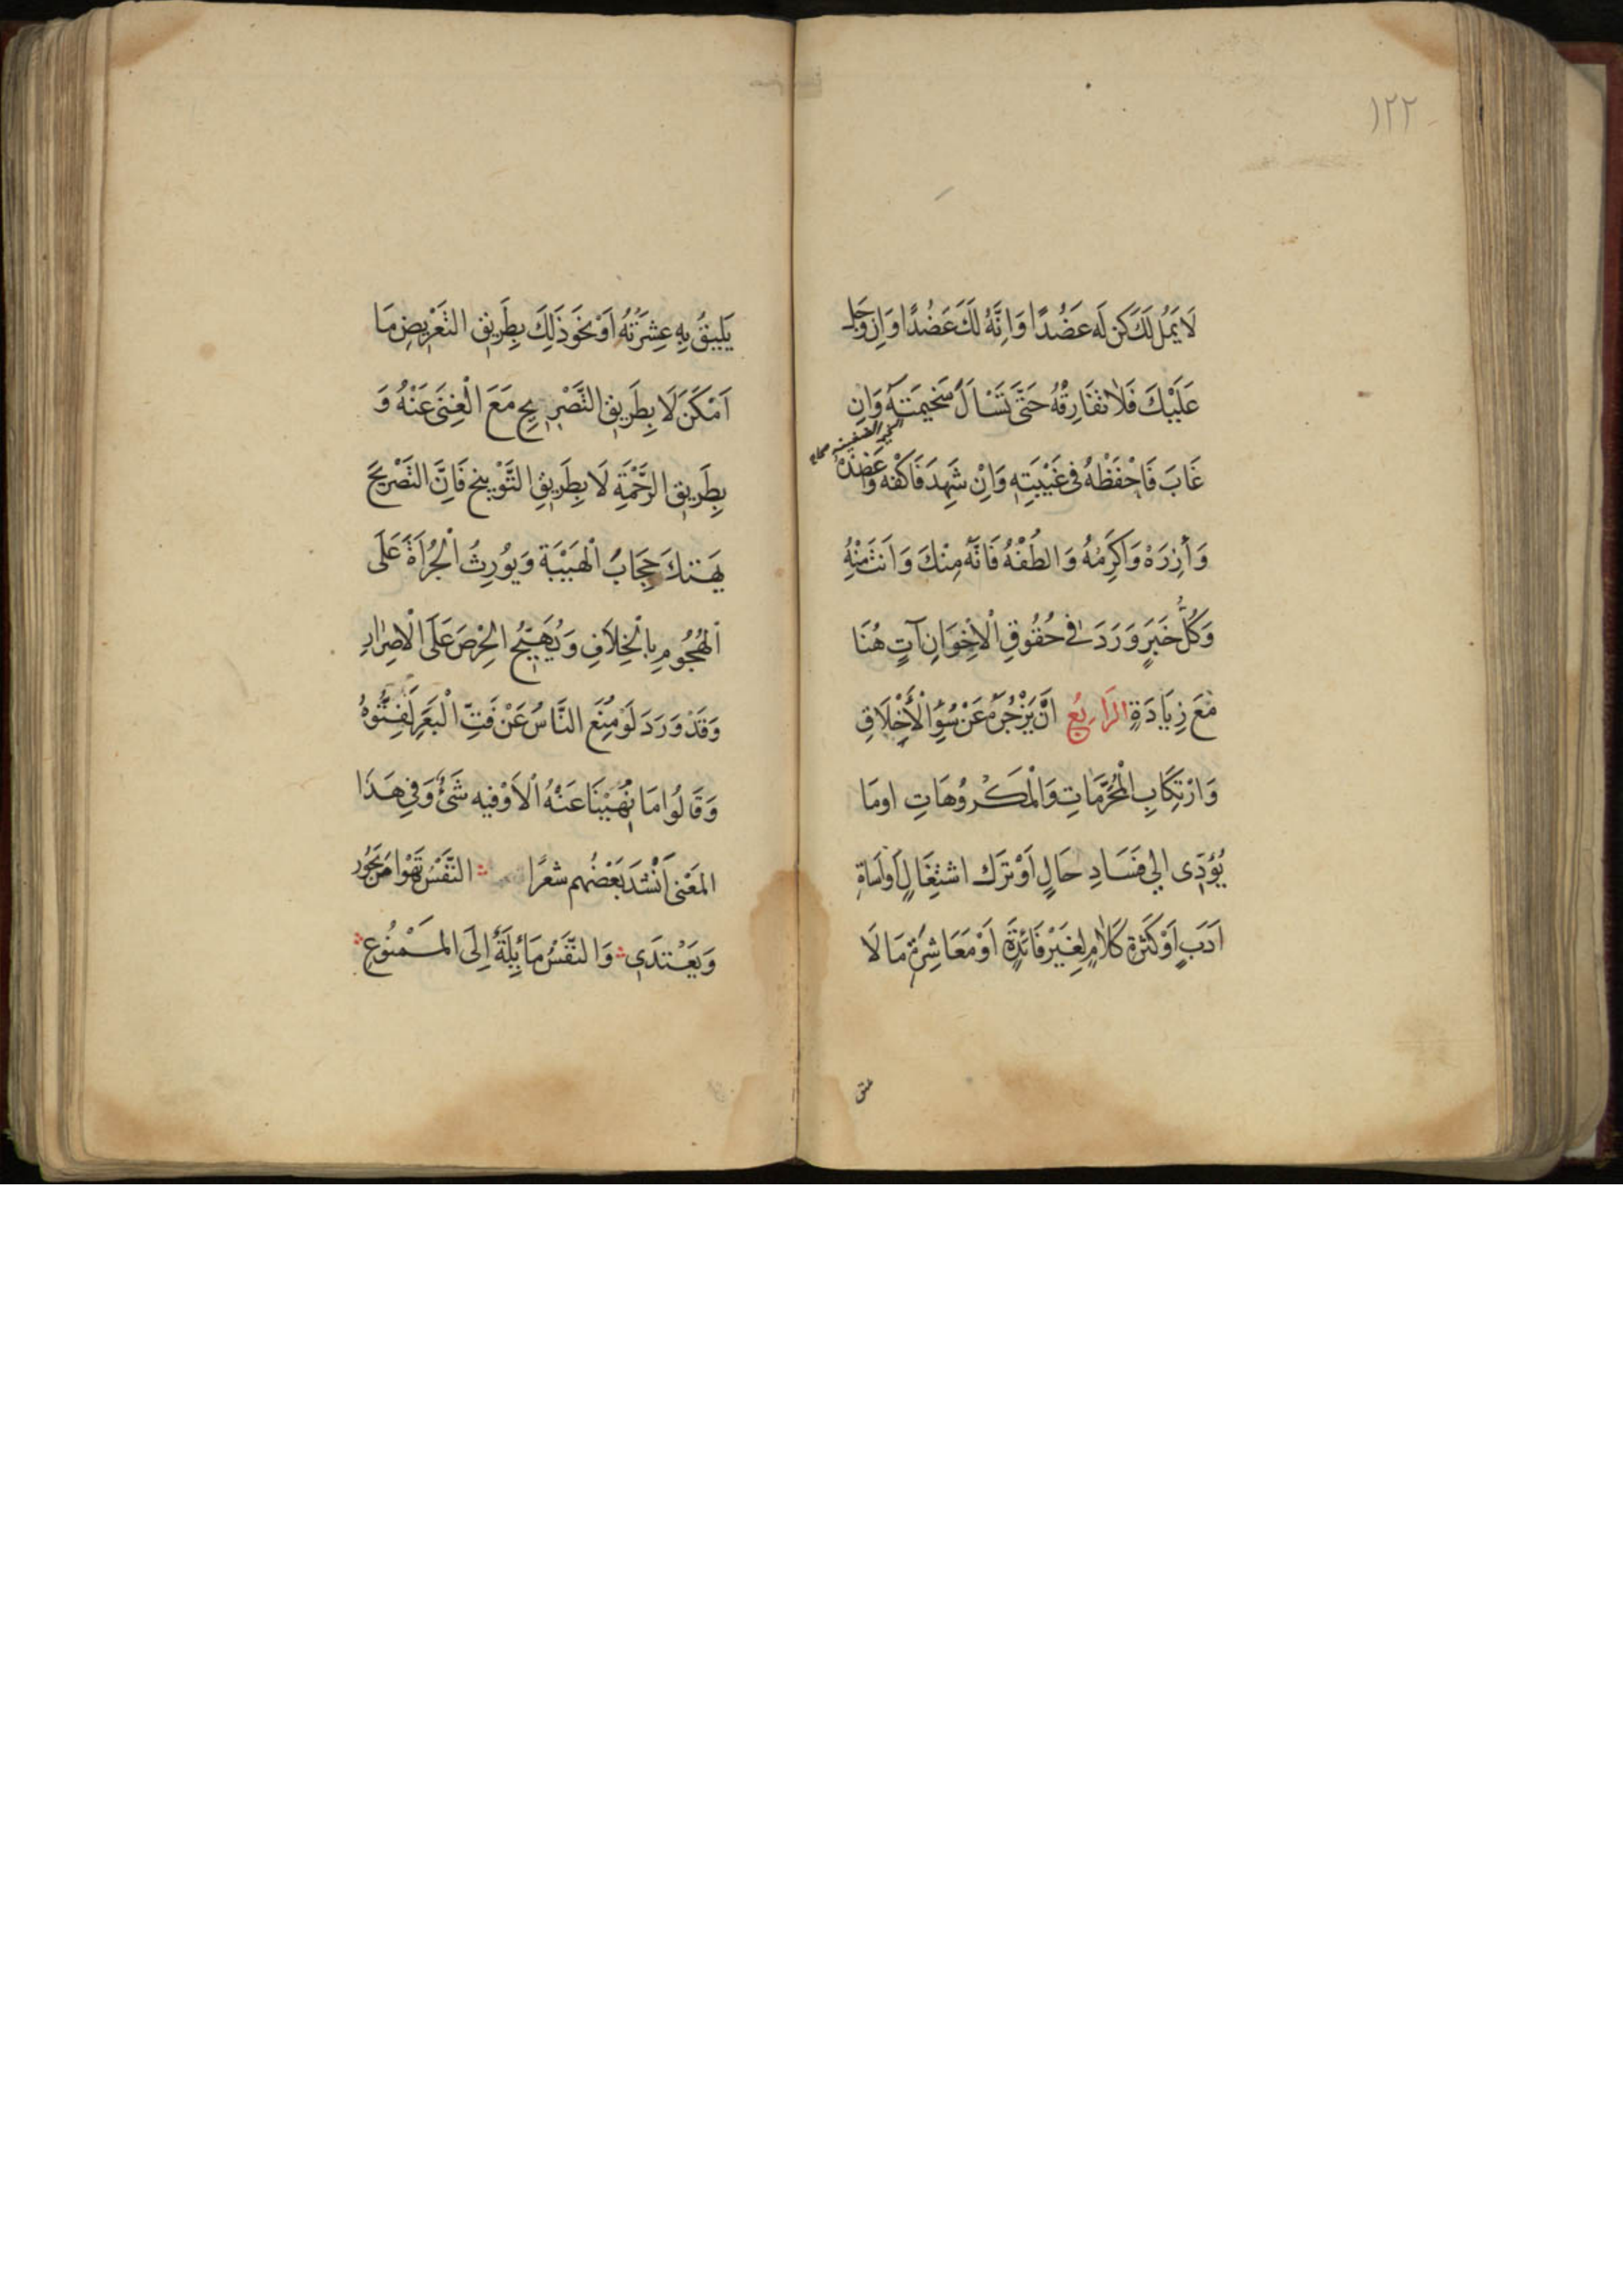 ١٢٢
لَا يَمُلُ لَكَ كُن لَه عَضُدًا وَاِنَّهُ لَكَ عَضُدًا وَاِن وَجَدَ
عَلَيْكَ فَلَا تُفَارِقْهُ حَتَّى تَسْأَلَ سَخِيمَتَه وَاِن
غَابَ فَاحْفَظْهُ فِى غَيْبَتِهِ وَاِنْ شَهِدَ فَاكْنُفْهُ وَاعْضُدْهُ
وَأزِرَهْ وَاَكْرِمْهُ وَالطُفْهُ فَاِنَّهُ مِنْكَ وَاَنْتَ مِنْهُ
وَكُلُّ خَبَرٍ وَرَدَ فِى حُقُوقِ الْاِخْوَانِ آتٍ هُنَا
مَعَ زِيَادَةٍ الرَّابِعُ اَنْ يَزْجُرَهُ عَنْ سُوْءِ الْأَخْلَاقِ
وَارْتِكَابِ الْمُحَرَّمَاتِ وَالْمَكْرُوهَاتِ اَوْمَا
يُؤَدِّى اِلىَ فَسَادِ حَالٍ اَوْ تَرْكِ اشْتِغَالٍ اَوْاِسَاءَةِ
اَدَبٍ اَوْ كَثْرَةِ كَلَامٍ لِغَيْرِ فَائِدَةٍ اَوْ مُعَاشِرَةِ مَا لَا
يَلِيقُ بِهِ عِشْرَتُهُ اَوْ نَحْوَ ذَلِكَ بِطَرِيقِ التَّعْرِيضِ مَا
اَمْكَنَ لَا بِطَرِيقِ التَّصْرِيحِ مَعَ الْغِنَى عَنْهُ وَ
بِطَرِيقِ الرَّحْمَةِ لَا بِطَرِيقِ التَّوْبِيخِ فَاِنَّ التَّصْرِيحَ
يَهْتِكَ حِجَابُ الْهَيْبَةِ وَيُورِثُ الْجُرْاَةَ عَلَى
الْهُجُومِ بِالْخِلَافِ وَيُهَيِّجُ الْحِرْصَ عَلَى الْاِصْرَارِ
وَقَدْ وَرَدَ لَوْ مُنِعَ النَّاسُ عَنْ فَتِّ الْبَعَرِ لَفَتُّوهُ
وَقَالُوا مَا نُهِيْنَا عَنْهُ اِلَّا وَفِيهِ شَىْءٌ وَفِى هَذَا
الْمَعْنى اَنْشَدَ بَعْضُهُم شعْرًا النَّفْسُ تَهْوَا مَنْ يَجُور
وَيَعْتَدَى وَالنَّفْسُ مَائِلَةٌ اِلَى الْمَمْنُوعِ